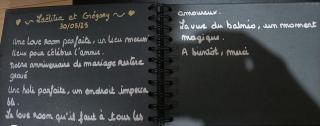 Laëtitia et Grégory
30/05/23
Une love room parfaite, un lieu
lieux pour célébrer l'amour.
Notre anniversaire de mariage restera
gravé
Une hôte parfaite, un endroit impecca
ble.
La love room qu'il faut à tous les
amoureux.
La vue du balnéo, un moment
magique.
A bientôt, merci